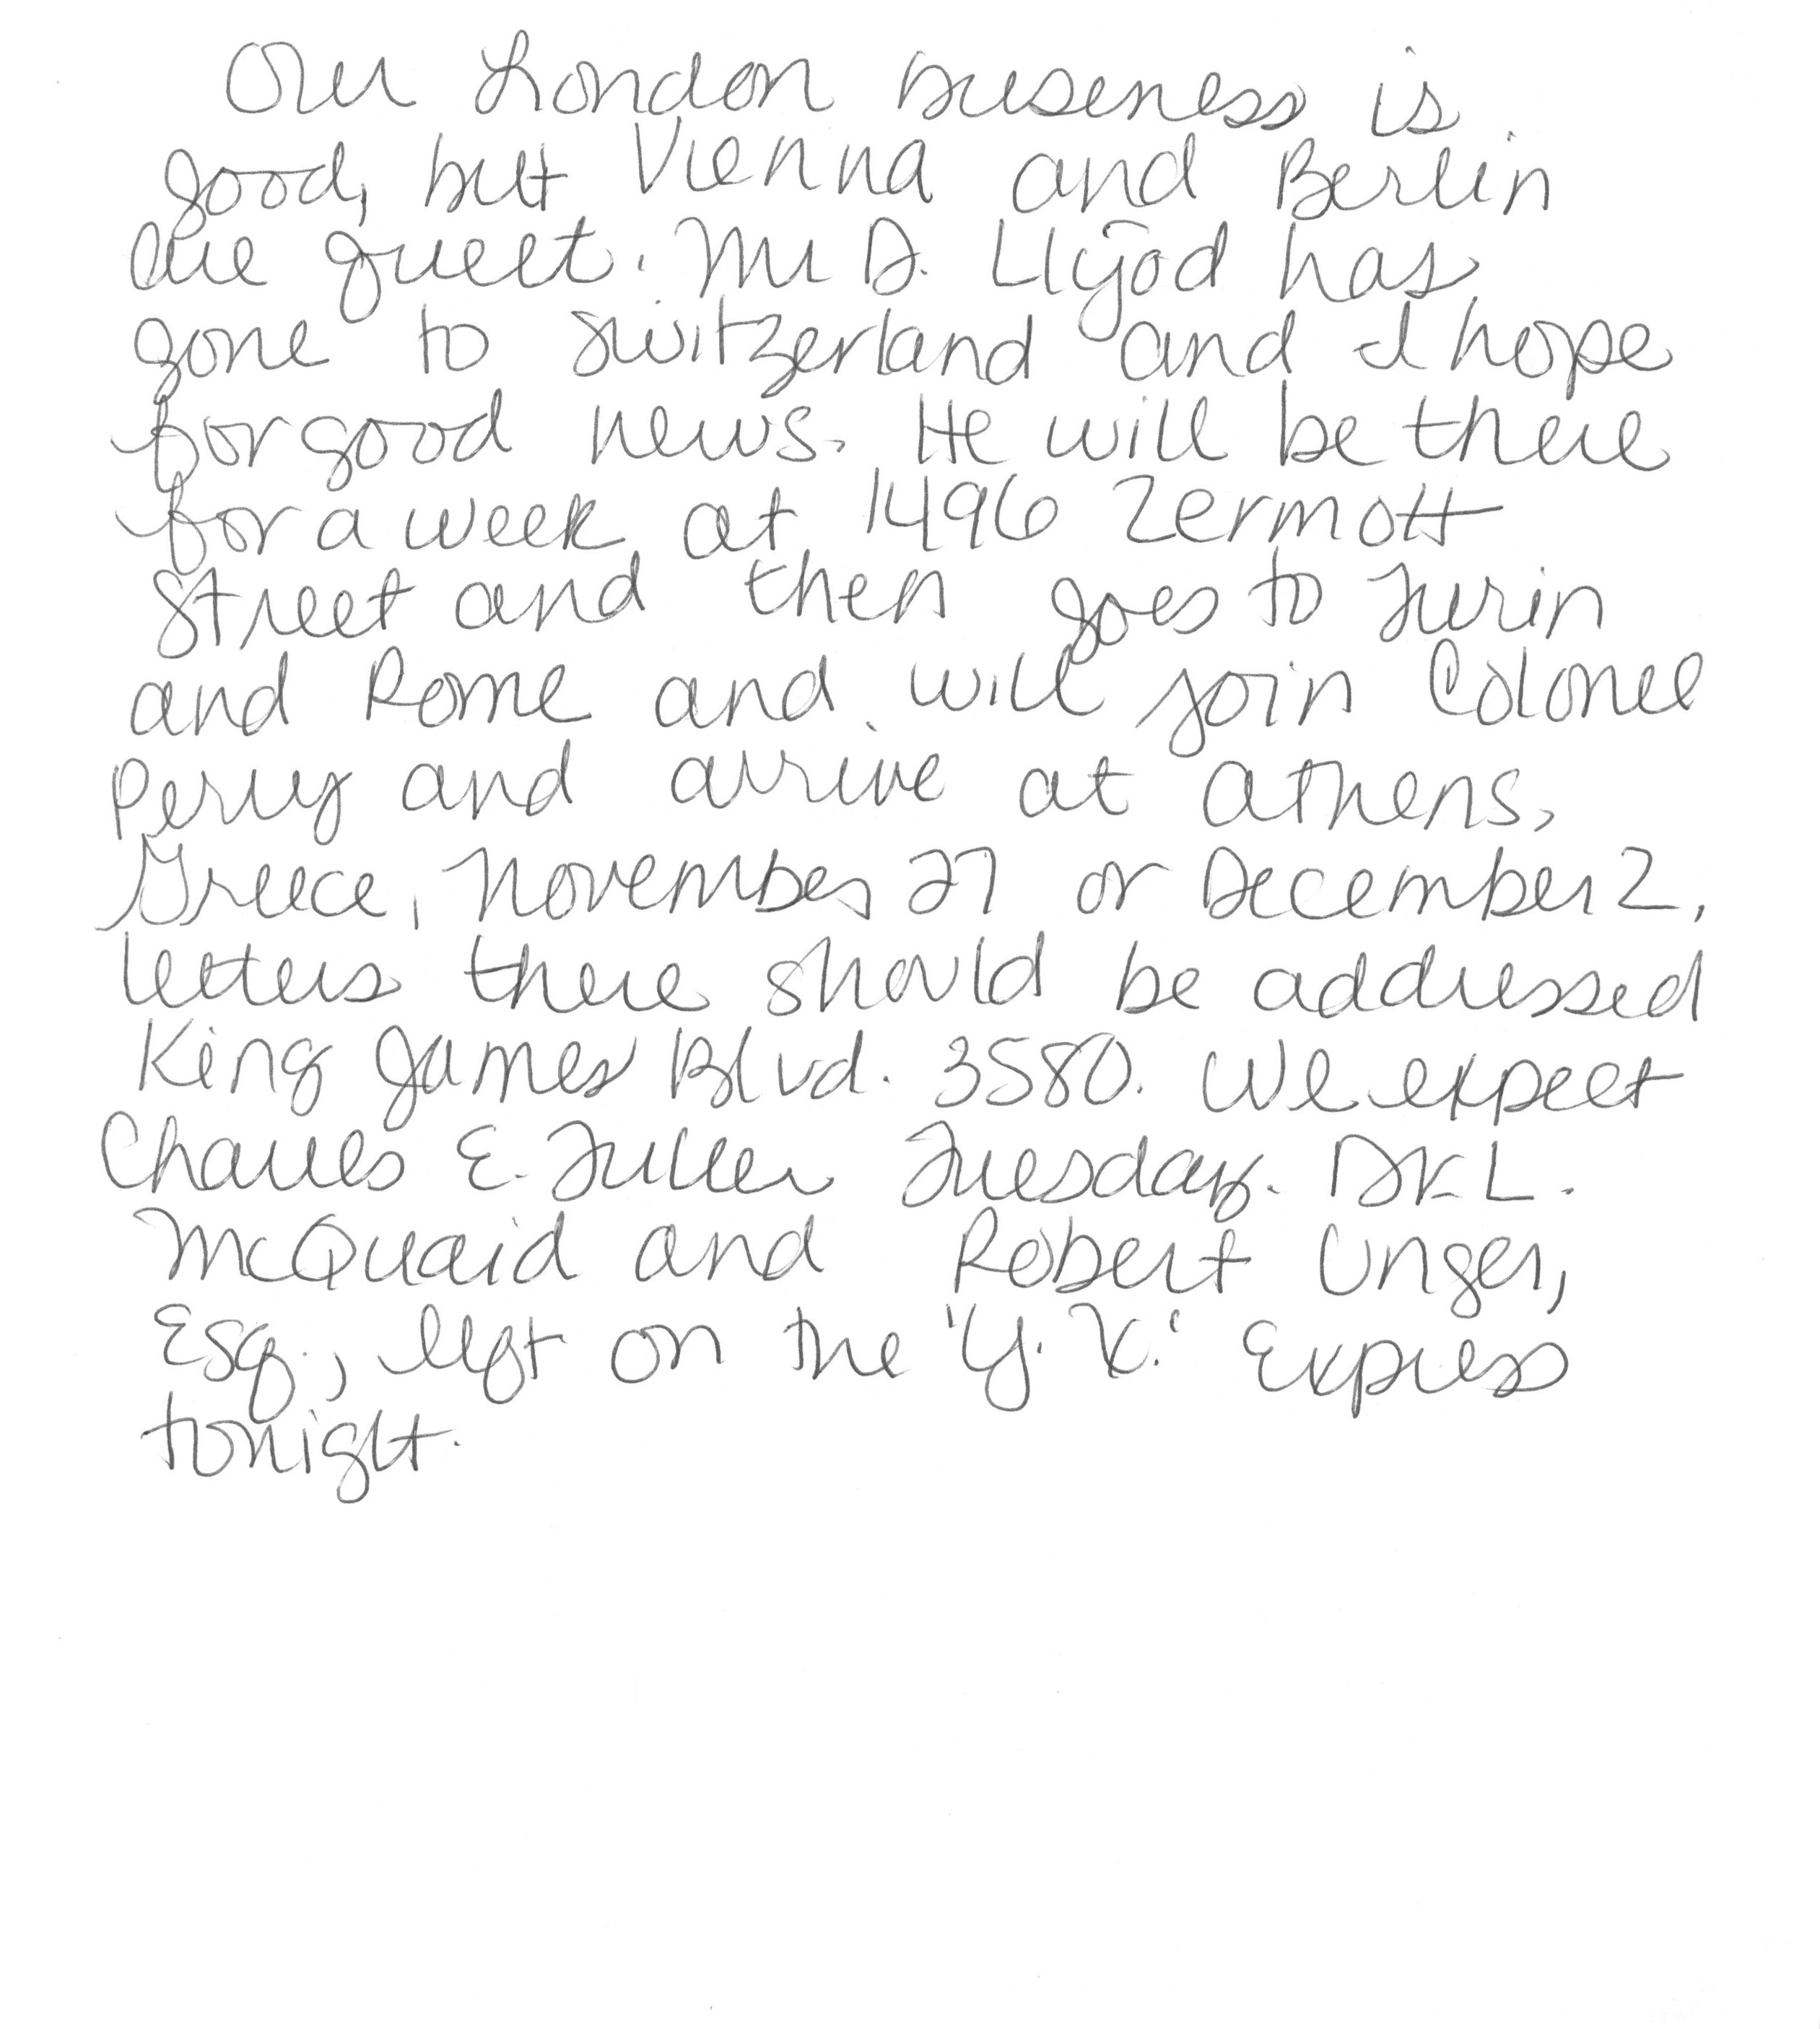 Our London business is
good, but Vienna and Berlin
are quiet. Mr D. Llyod has
gone to Switzerland and I hope
for good news. He will be there
for a week at 1496 Zermott
Street and then goes to Turin
and Rome and will join Colonel
Perry and arrive at Athens,
Greece, November 27 or December 2.
Letters there should be addressed
King James Blvd. 3580. We expect
Charles E. Fuller Tuesday. Dr L.
McQuaid and Robert Unger,
Esq., left on the 'Y. X.' Express
tonight.